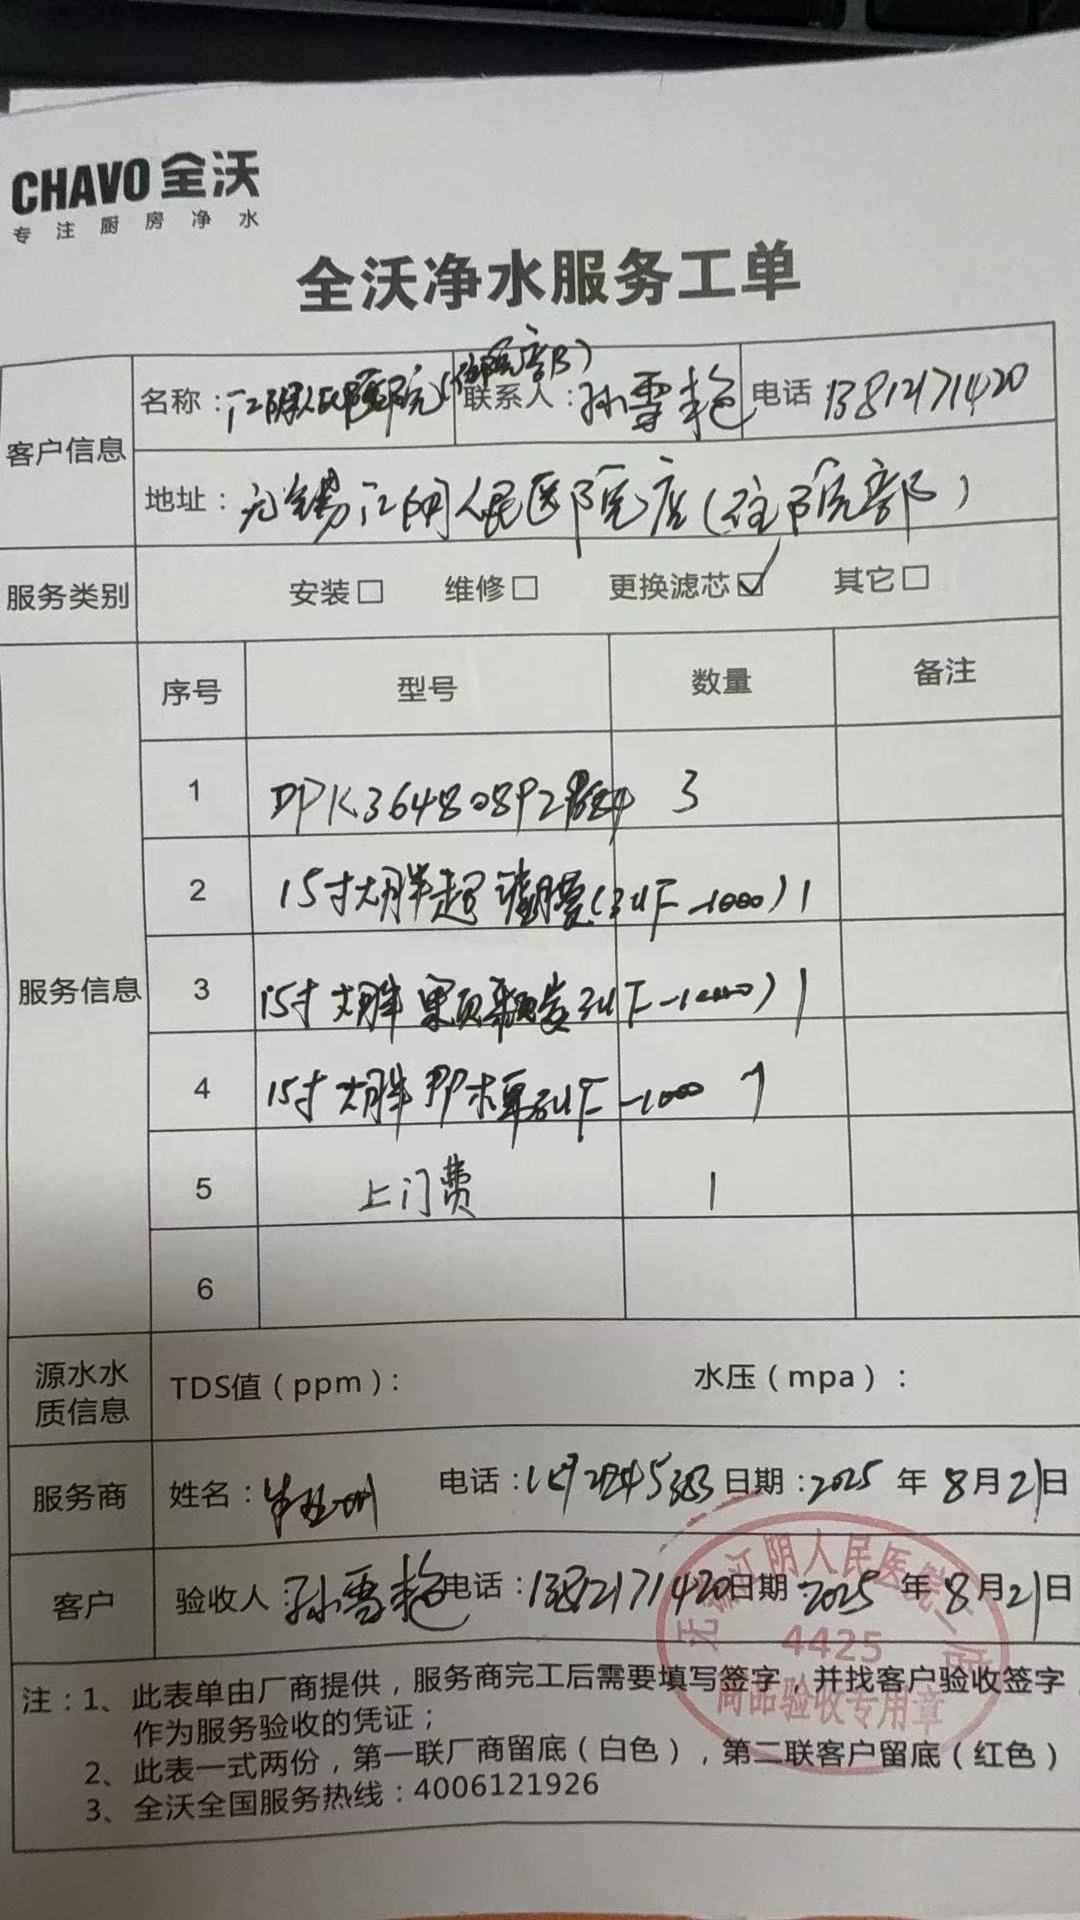 CHAVO 全沃
专注厨房净水
全沃净水服务工单
客户信息
名称：江阴人民医院(住院部)
联系人：孙雪艳
电话 13812171420
地址：无锡江阴人民医院店(住院部)
服务类别 安装□ 维修□ 更换滤芯☑ 其它□
服务信息
序号 型号 数量 备注
1 DPK36480892 3
2 15寸大胖超滤膜(3UF-1000) 1
3 15寸大胖果壳颗炭3UF-1000) 1
4 15寸大胖 3UF-1000 1
5 上门费 1
6
源水水质信息 TDS值（ppm）： 水压（mpa）：
服务商 姓名： 电话： 日期：2025 年 8月21日
客户 验收人 孙雪艳 电话：13812171420 日期：2025 年 8月21日
无锡江阴人民医院一店
4425
商品验收专用章
注：1、此表单由厂商提供，服务商完工后需要填写签字，并找客户验收签字，
作为服务验收的凭证；
2、此表一式两份，第一联厂商留底（白色），第二联客户留底（红色）
3、全沃全国服务热线：4006121926